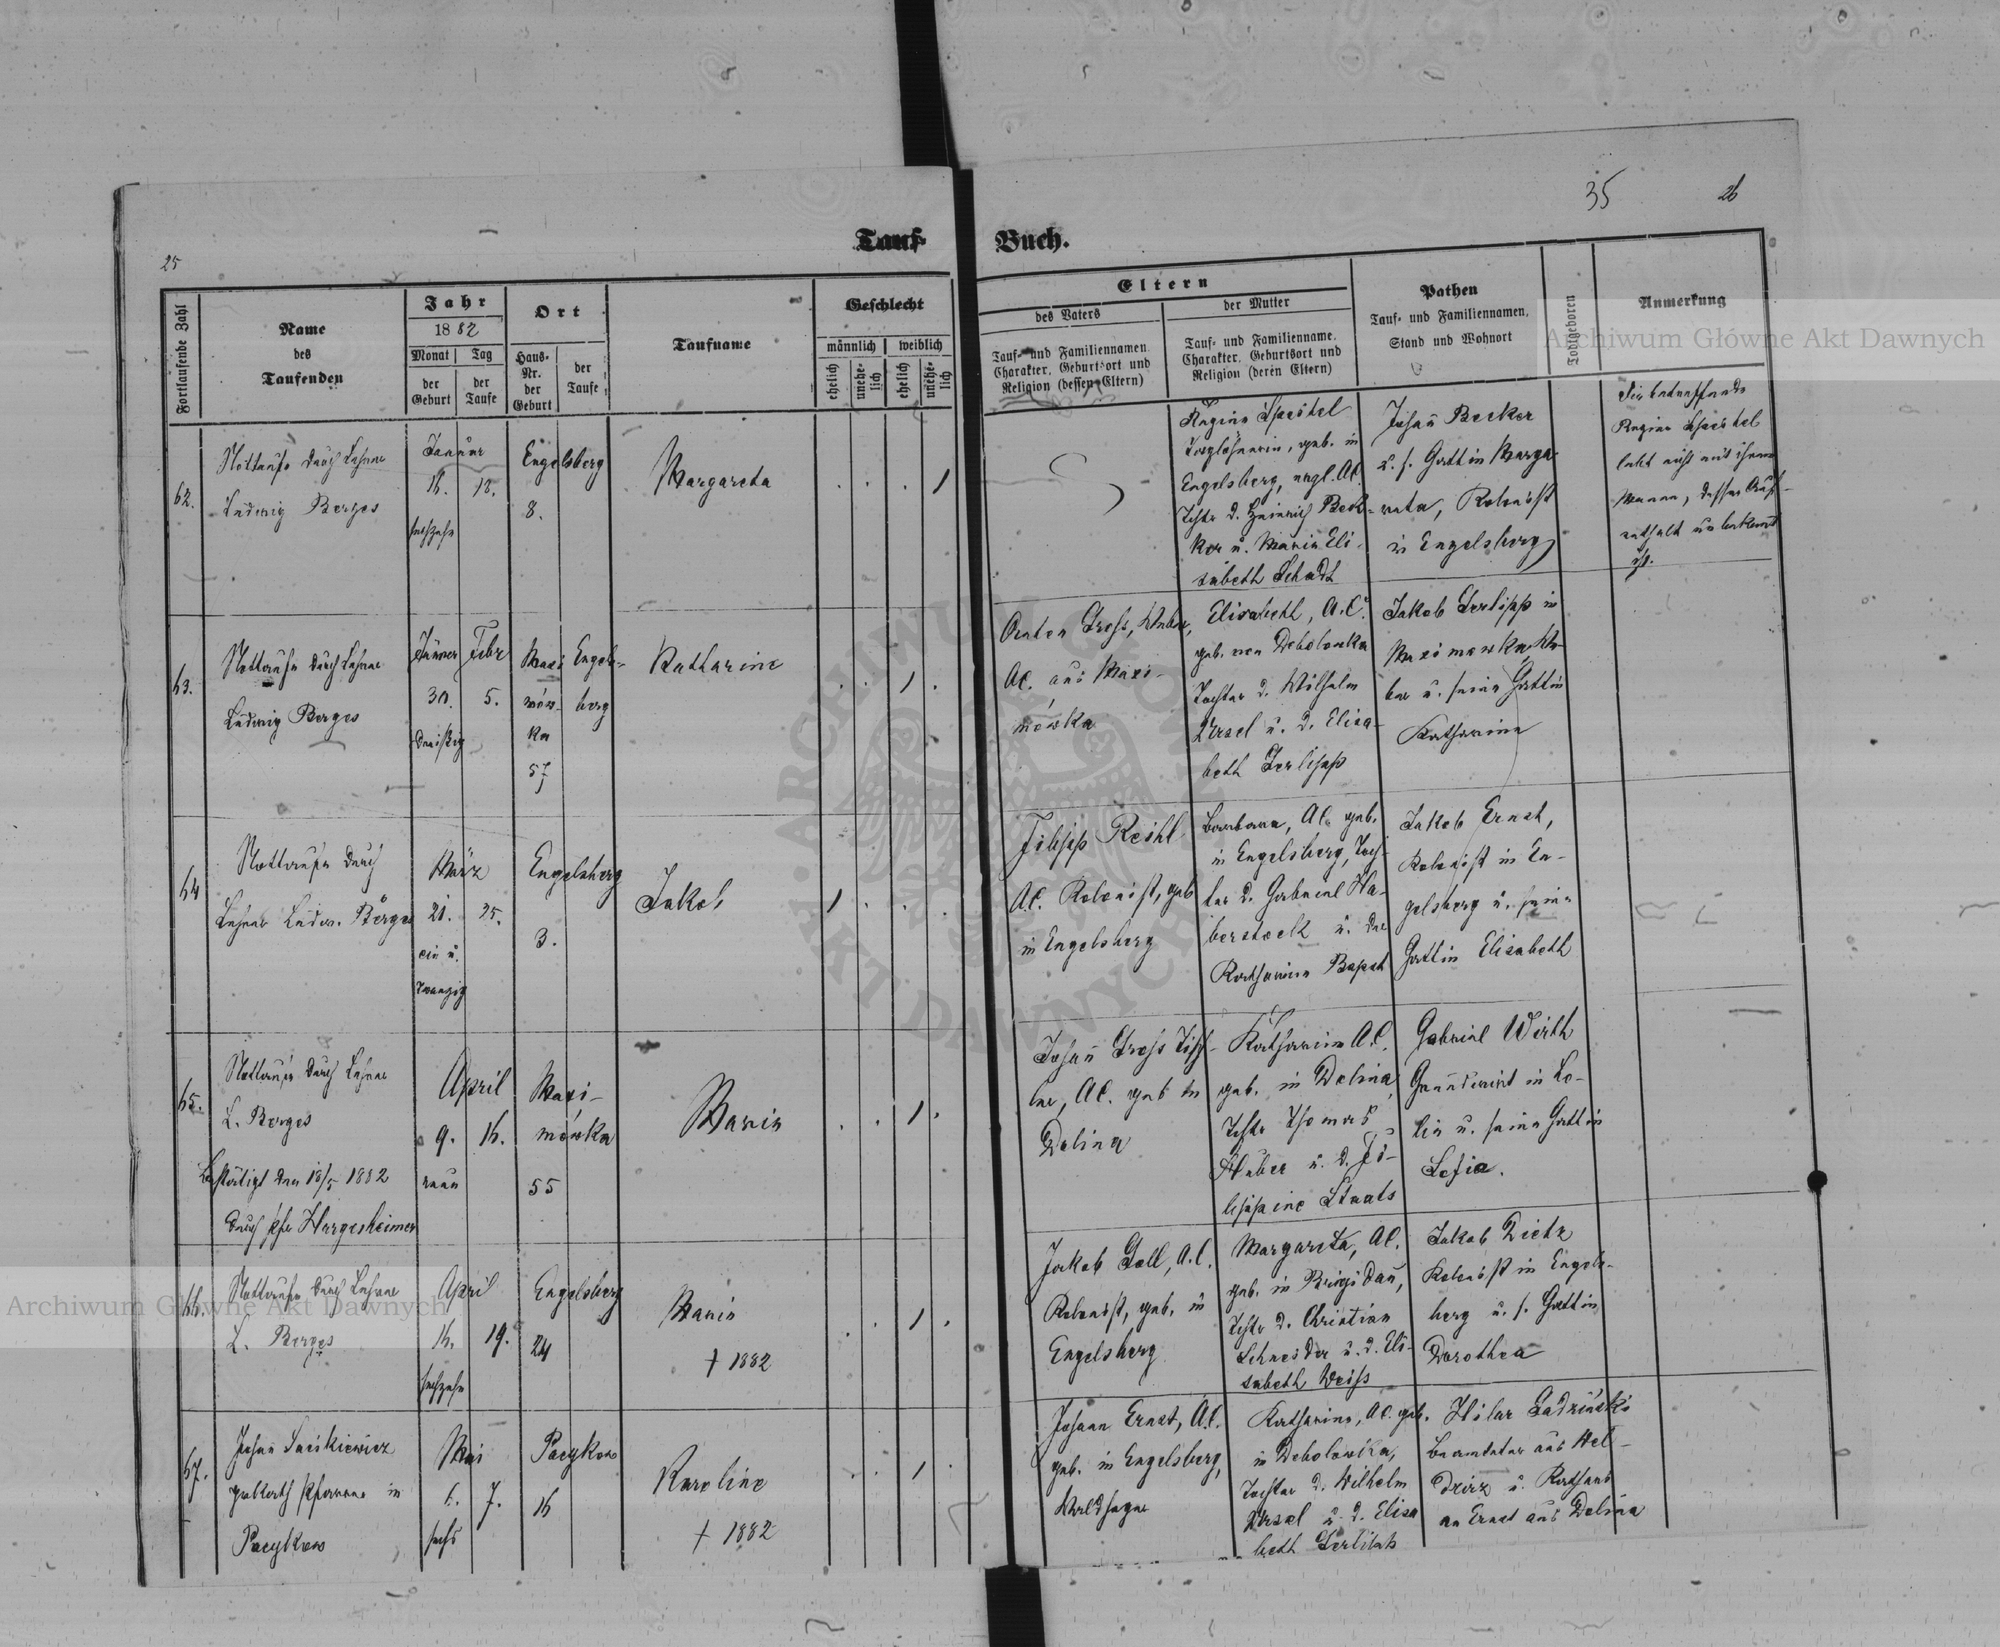 35
26
25
Tauf-
Buch.
Fortlaufende Zahl
Name
des
Taufenden
Jahr
1882
Monat
Tag
der
Geburt
der
Taufe
Ort
Haus-
Nr.
der
Geburt
der
Taufe
Taufname
Geschlecht
männlich
weiblich
ehelich
unehe-
lich
ehelich
unehe-
lich
Eltern
des Vaters
Tauf- und Familiennamen,
Charakter, Geburtsort und
Religion (dessen Eltern)
der Mutter
Tauf- und Familienname,
Charakter, Geburtsort und
Religion (deren Eltern)
Pathen
Tauf- und Familiennamen,
Stand und Wohnort
Todtgeboren
Anmerkung
62.
Nottaufe durch Lehrer
Ludwig Berges
Januar
16.
18.
sechzehn
Engelsberg
8.
Margareta
Regina
Taglöhnerin, geb. in
Engelsberg, evgl. AC.
Tchtr d. Heinrich Bek-
ker u. Maria Eli-
sabeth Schadt
Johan̄ Becker
u. s. Gattin Marga-
reta, Kolonist
in Engelsberg
Die betreffende
Regina
lebt nicht mit ihrem
Manne, dessen Auf-
enthalt unbekannt
ist.
63.
Nottaufe durch Lehrer
Ludwig Berges
Jänner
Febr
30.
5.
dreißig
Maxi
mów-
ka
57
Engels-
berg
Katharine
AC. aus Maxi-
mówka
Elisabeth, A.C.
geb. von Debolowka
Tochter d. Wilhelm
Ursel u. d. Elisa-
beth
Jakob
Maximowka
u. seine Gattin
Katharina
64
Nottaufe durch
Lehrer Ludw. Berges
März
21.
25.
ein u.
zwanzig
Engelsberg
3.
Jakob
Filipp
AC. Kolonist, geb
in Engelsberg
Barbara, AC. geb.
in Engelsberg, Toch-
ter d. Gabriel Ha-
berstock u. der
Katharina Bapst
Jakob Ernst,
Kolonist in En-
gelsberg u. seine
Gattin Elisabeth
65.
Nottaufe durch Lehrer
L. Berges
Bestätigt den 18/5 1882
durch Pfr Hargesheimer
April
9.
16.
neun
Maxi-
mówka
55
Maria
Johan̄
AC. geb in
Dolina
Katharina A.C.
geb. in Dolina
Tchtr Thomas
Huber u. d. Fi-
lippine Staats
Gabriel Wirth
Grundwirt in Do-
lin u. seine Gattin
Sofia.
66.
Nottaufe durch Lehrer
L. Berges
April
16.
19.
sechzehn
Engelsberg
24
Maria
† 1882
Jakob A.C.
Kolonist, geb. in
Engelsberg
Margareta, AC.
geb. in Brigidau,
Tchtr d. Christian
Schneider u. d. Eli-
sabeth Weiss
Jakob Dietz
Kolonist in Engels-
berg u. s. Gattin
Dorothea
67.
Johan̄
Pfarrer in
Pacykow
Mai
6.
7.
sechs
Pacykow
16
Karoline
† 1882
Johann Ernst, A.C.
geb. in Engelsberg,
Waldheger
Katharina, AC. geb.
in Debolówka,
Tochter d. Wilhelm
Ursel u. d. Elisa
beth
Beamter aus
u. Kathari-
na Ernst aus Dolina
Archiwum Główne Akt Dawnych
Archiwum Główne Akt Dawnych
ARCHIWUM GŁÓWNE AKT DAWNYCH